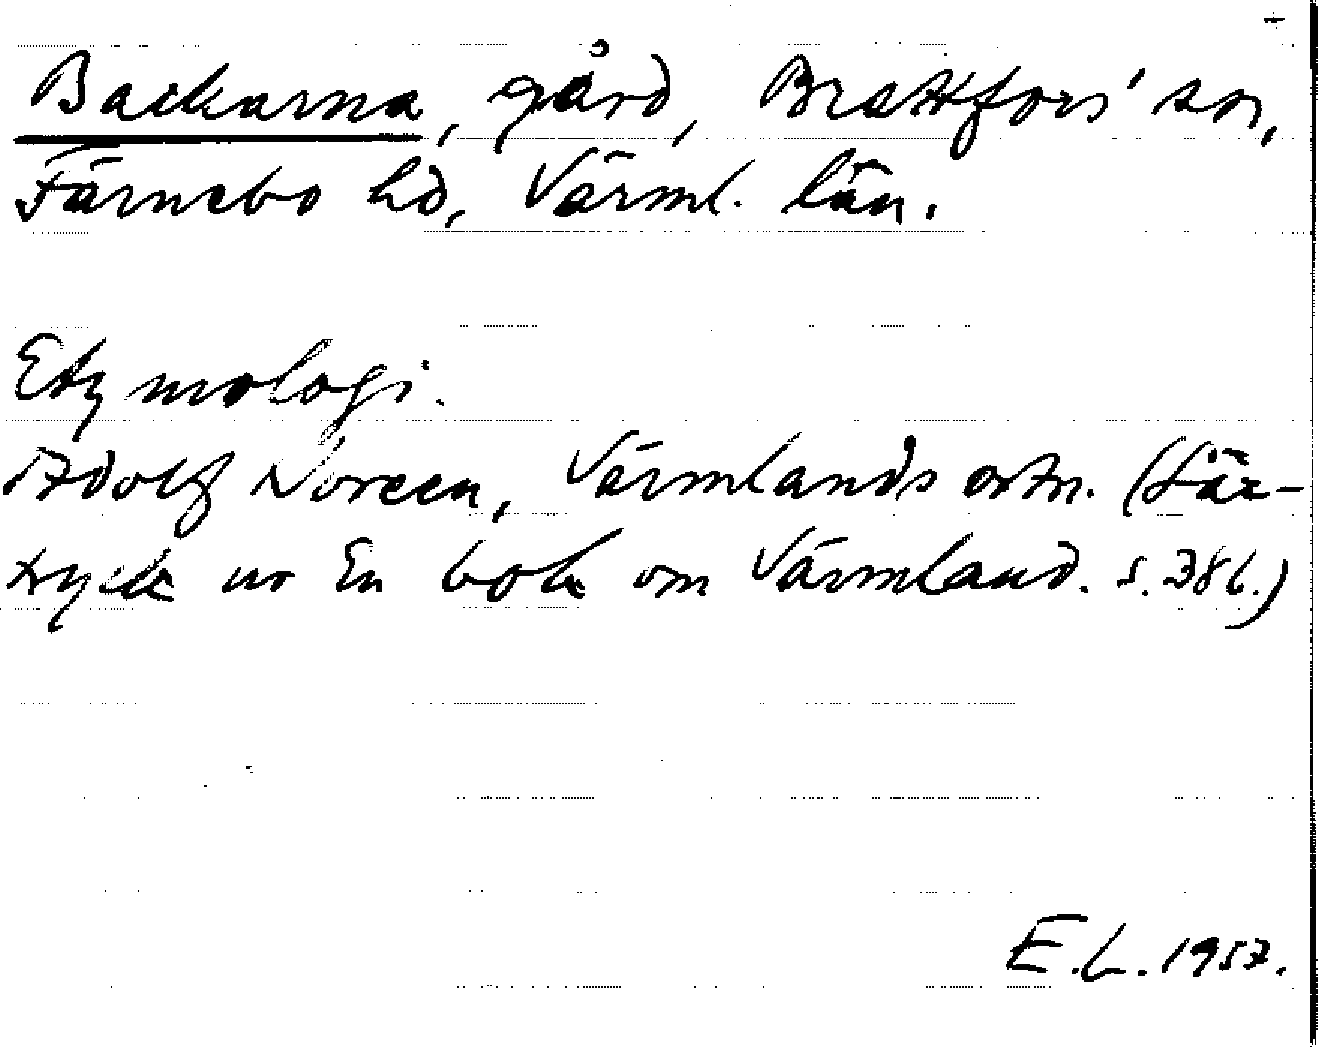 Backarna, gård, Brattfors' sn,
Färnebo hd, Värml. län.
Etymologi.
Adolf Noreen, Värmlands ortn. (Sär-
tryck ur En bok om Värmland. s. 386.)
E.L. 1957.